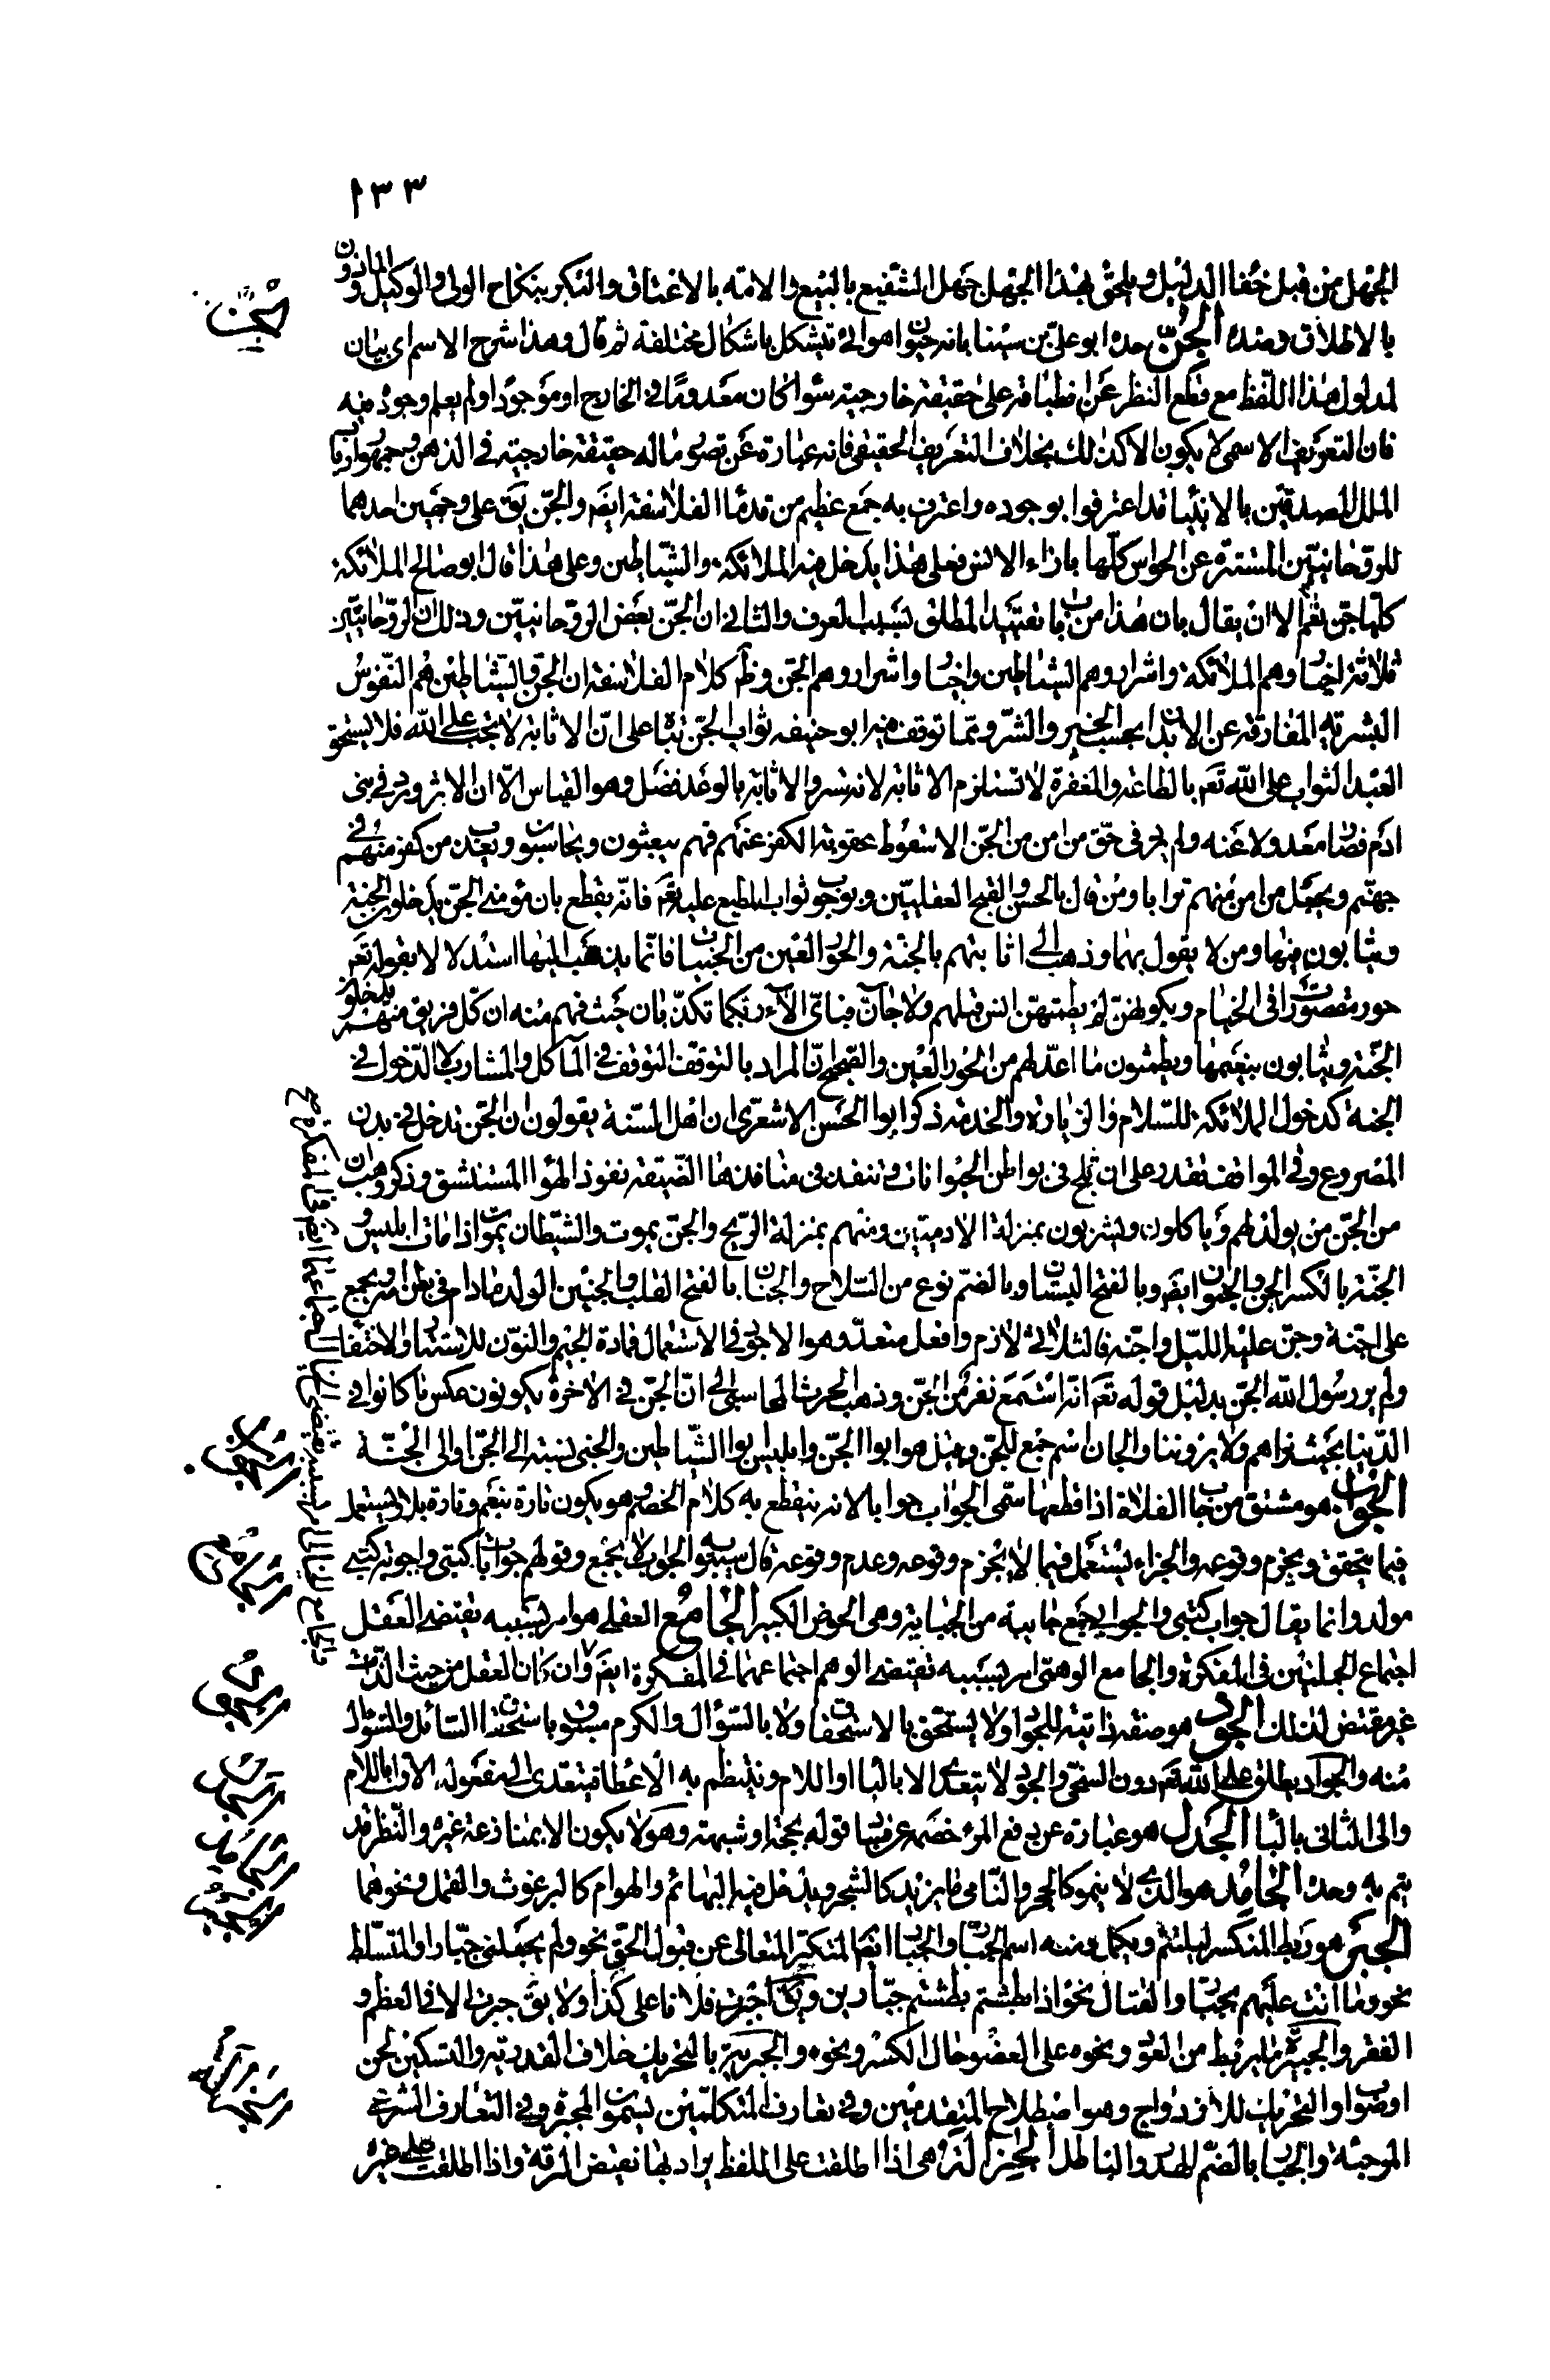 ١٣٣
الجهل من قبل خفاء الدليل ويلحق بهذا الجهل جهل الشفيع بالبيع والامة بالاعتاق والبكر بنكاح الولى والوكيل والماذون
بالاطلاق وضده الجن حده ابو على بن سينا بانه حيوان هوائى يتشكل باشكال مختلفة ثم قال وهذا شرح الاسم اى بيان
لمدلول هذا اللفظ مع قطع النظر عن انطباقه على حقيقة خارجية سواء كان معدوما فى الخارج او موجودا ولم يعلم وجوده فيه
فان التعريف الاسمى لا يكون الا كذلك بخلاف التعريف الحقيقى فانه عبارة عن تصور ما له حقيقة خارجية فى الذهن وجمهور ارباب
الملل المصدقين بالانبياء قد اعترفوا بوجوده واعترف به جمع عظيم من قدماء الفلاسفة ايضا والجن يق على وجهين احدهما
للروحانيين المستترة عن الحواس كلها بازاء الانس فعلى هذا يدخل فيه الملائكة والشياطين وعلى هذا قال ابو صالح الملائكة
كلها جن نعم الا ان يقال بان هذا من باب تقييد المطلق بسبب العرف والثانى ان الجن بعض الروحانيين وذلك ان الروحانيين
ثلاثة اخيار وهم الملائكة واشرار وهم الشياطين واخيار واشرار وهم الجن وظ كلام الفلاسفة ان الجن والشياطين هم النفوس
البشرية المفارقة عن الابدان بحسب الخير والشر ومما توقف فيه ابو حنيفه ثواب الجن بناء على ان الاثابة لا تجب على الله فلا يستحق
العبد الثواب على الله تعم بالطاعة والمغفرة لا تستلزم الاثابة لانه ستر والاثابة بالوعد فضل وهو القياس الا ان الاثر ورد فى بنى
ادم فصار معدولا عنه ولم يرد فى حق من امن من الجن الا سقوط عقوبة الكفر عنهم فهم يبعثون ويحاسبون ويعذب من كفر منهم فى
جهنم ويجعل من امن منهم ترابا ومن قال بالحسن والقبح العقليين وبوجوب ثواب المطيع عليه تعم فانه يقطع بان مؤمنى الجن يدخلون الجنة
ويثابون فيها ومن لا يقول بهما وذهب الى اثابتهم بالجنة والحور العين من الجنيات فانما يذهب اليها استدلالا بقوله تعم
حور مقصورات فى الخيام وبكونهن لم يطمثهن انس قبلهم ولا جان فباى الاء ربكما تكذبان حيث فهم منه ان كل فريق منهم يدخلون
الجنة ويثابون بنعيمها ويطمثون ما اعد لهم من الحور العين والصحيح ان المراد بالتوقف التوقف فى المآكل والمشارب لا الدخول فى
الجنة كدخول الملائكة للسلام والزيارة والخدمة ذكر ابو الحسن الاشعرى ان اهل السنة يقولون ان الجن تدخل فى بدن
المصروع وفى المواقف تقدر على ان تلج فى بواطن الحيوانات وتنفذ فى منافذها الضيقة نفوذ الهواء المستنشق وذكر وهب ان
من الجن من يولد لهم وياكلون ويشربون بمنزلة الادميين ومنهم بمنزلة الريح والجن يموت والشيطان يموت اذا مات ابليس و
الجنة بالكسر الجن والجنون ايضا وبالفتح البستان وبالضم نوع من السلاح والجنان بالفتح القلب والجنين الولد مادام فى بطن امه ويجمع
على اجنة وجن عليه الليل واجنه فالثلاثى لازم وافعل متعد وهو الاجود فى الاستعمال فمادة الجيم والنون للاستتار والاختفاء
ولم ير رسول الله الجن بدليل قوله تعم انه استمع نفر من الجن وذهب الحرث المحاسبى الى ان الجن فى الاخرة يكونون عكس ما كانوا فى
الدنيا بحيث نراهم ولا يروننا والجان اسم جمع للجن وقيل هو ابو الجن وابليس ابو الشياطين والجنى نسبة الى الجن او الى الجنة
الجواب هو مشتق من جاب الفلاة اذا قطعها سمى الجواب جوابا لانه ينقطع به كلام الخصم وهو يكون تارة بنعم وتارة بلا ويستعمل
فيما يتحقق ويجزم وقوعه والجزاء يستعمل فيما لا يجزم وقوعه وعدم وقوعه قال سيبويه الجواب لا يجمع وقولهم جوابات كتبى واجوبة كتبى
مولد وانما يقال جواب كتبى والجوابى جمع جابية من الجباية وهى الحوض الكبير الجامع العقلى هو امر بسببه يقتضى العقل
اجتماع الجملتين فى المفكرة والجامع الوهمى امر بسببه يقتضى الوهم اجتماعهما فى المفكرة ايضا وان كان العقل من حيث الذات
غير مقتض لذلك الجود هو صفة ذاتية للجواد ولا يستحق بالاستحقاق ولا بالسؤال والكرم مسبوق باستحقاق السائل والسؤال
منه والجواد يطلق على الله تعم دون السخى والجود لا يتعدى الا بالباء او اللام وينتظم به الاعطاء فيتعدى الى مفعوله الاول باللام
والى الثانى بالباء الجدل هو عبارة عن دفع المرء خصمه عن فساد قوله بحجة او شبهة وهو لا يكون الا بمنازعة غيره والنظر قد
يتم به وحده الجامد هو الذى لا ينمو كالحجر والنامى ما يزيد كالشجر ويدخل فيه البهائم والهوام كالبرغوث والقمل ونحوهما
الجبر هو ربط المنكسر ليلتئم ويكمل ومنه اسم الجبار والجبار ايضا المتكبر المتعالى عن قبول الحق نحو ولم يجعلنى جبارا والمتسلط
نحو وما انت عليهم بجبار والقتال نحو اذا بطشتم بطشتم جبارين ويق اجبرت فلانا على كذا ولا يق جبرت الا فى العظم و
الفقر والجبيرة ما يربط من العود ونحوه على العضو حال الكسر ونحوه والجبرية بالتحريك خلاف القدرية والتسكين لحن
او صواب والتحريك للازدواج وهو اصطلاح المتقدمين وفى تعارف المتكلمين يسمون المجبرة وفى التعارف الشرعى
المرجئة والجبار بالضم الهدر والباطل الجزالة هى اذا اطلقت على اللفظ يراد بها نقيض الرقة واذا اطلقت على غيره